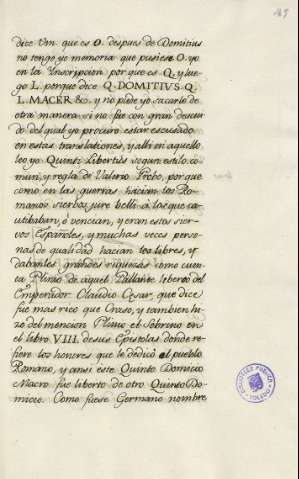 185
dice Vm. que es O. despues de Domitius
no tengo yo memoria que pusiese O. yo
en la Inscripcion porque es Q. y lue-
go L. porque dice Q. DOMITIVS. Q.
L. MACER. &c. y no pude yo sacarlo de
otra manera si no fue con gran descui-
do del qual yo procuro estar escusado
en estas translationes, y alli en aquello
leo yo Quinti Libertus segun estilo co-
mun, y regla de Valerio Probo, por que
como en las guerras hacian los Ro-
manos siervos jure belli à los que ca-
utibaban, ò vencian, y eran estos sier-
vos Españoles, y muchas veces perso-
nas de qualidad hacian los libres, y
dabanles grandes riquezas como cuen-
ta Plinio de aquel Pallante liberto del
Emperador Claudio Cesar, que dice
fue mas rico que Craso, y tambien hi-
zo del mencion Plinio el Sobrino en
el libro VIII. de sus Epistolas donde re-
fiere los honores que le dedicò el pueblo
Romano, y ansi este Quinto Domicio
Macro fue liberto de otro Quinto Do-
micio. Como fuese Germano nombre
BIBLIOTECA PUBLICA
TOLEDO